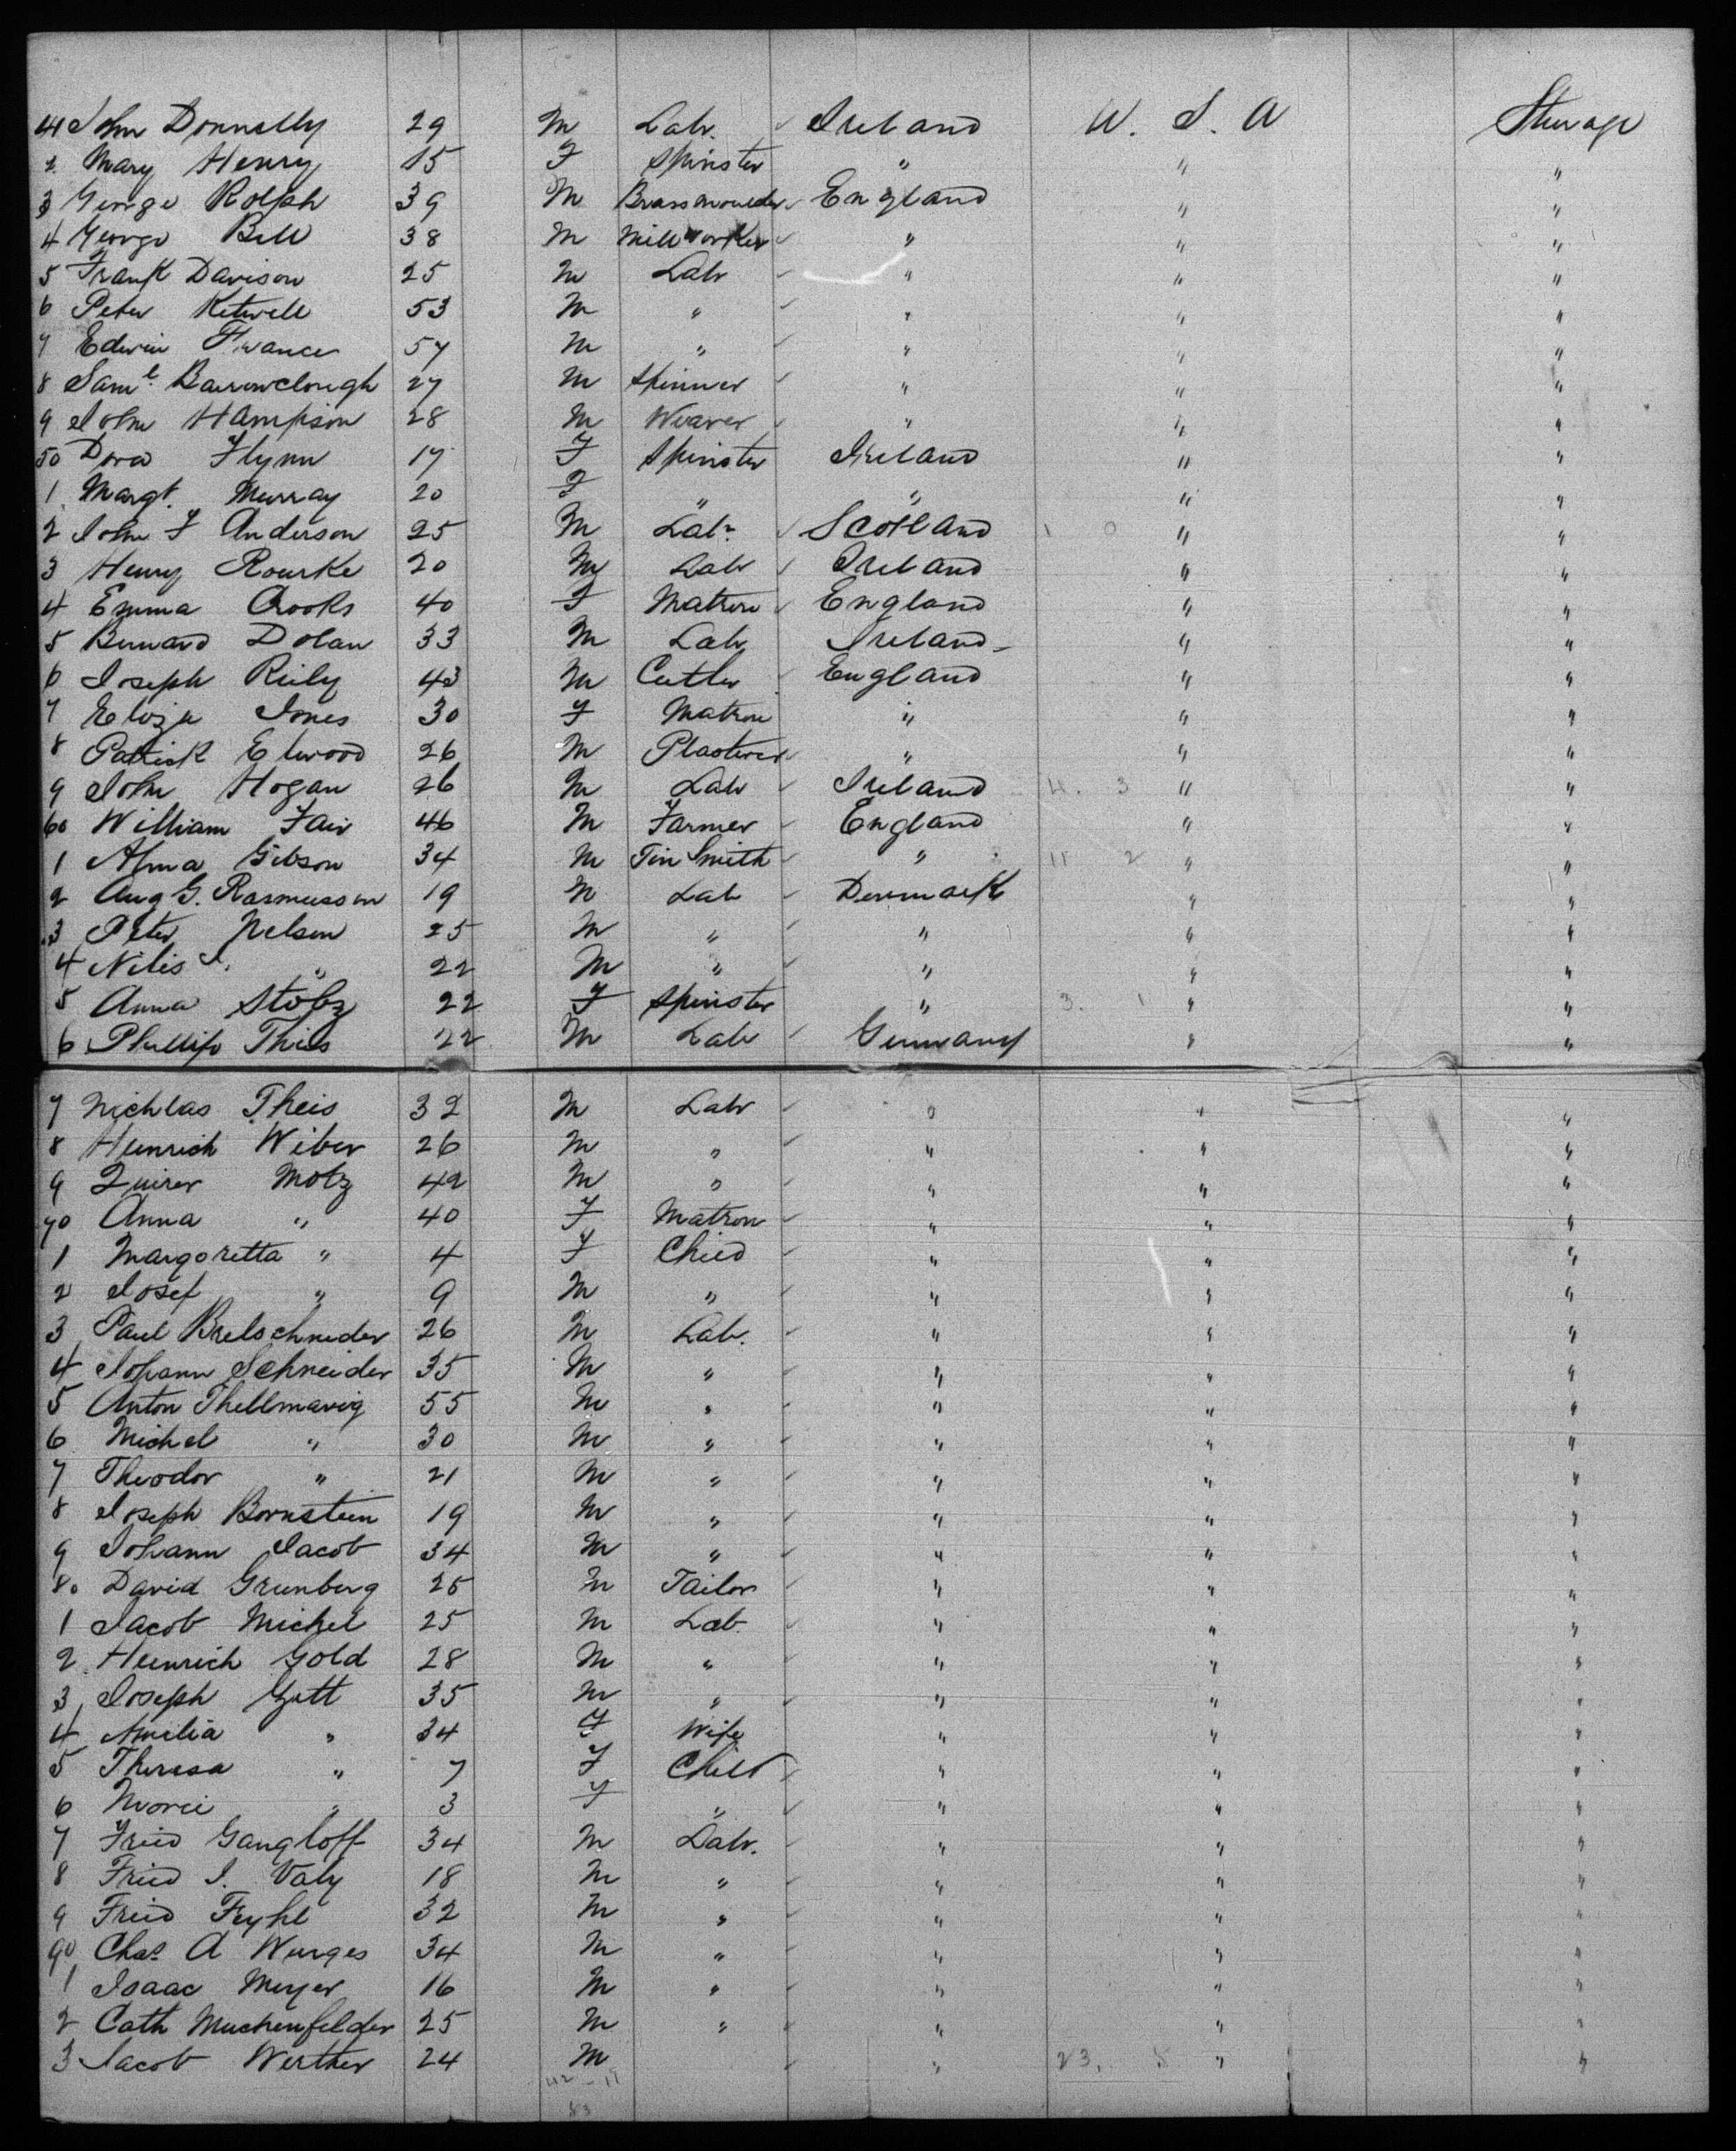 41 John Donnelly 29 M Labr. Ireland U. S. A Steerage
2 Mary Henry 15 F Spinster " " "
3 George Rolph 39 M Brassmoulder England " "
4 George Bell 38 M Millworker " " "
5 Frank Davison 25 M Labr " " "
6 Peter Ketwell 53 M " " " "
7 Edwin France 57 M " " " "
8 Saml. Barrowclough 27 M Spinner " " "
9 John Hampson 28 M Weaver " " "
50 Dora Flynn 17 F Spinster Ireland " "
1 Margt. Murray 20 F " " " "
2 John F Anderson 25 M Labr Scotland 1 0 " "
3 Henry Rourke 20 M Labr Ireland " "
4 Emma Crooks 40 F Matron England " "
5 Bernard Dolan 33 M Labr Ireland " "
6 Joseph Rily 43 M Cutler England " "
7 Eliza Jones 30 F Matron " " "
8 Patrick Elwood 26 M Plasterer " " "
9 John Hogan 26 M Labr Ireland 4. 3 " "
60 William Fair 46 M Farmer England " "
1 Alma Gibson 34 M Tin Smith " 11 2 " "
2 Aug G. Rasmusson 19 M Lab Denmark " "
3 Peter Nelson 25 M " " " "
4 Nilis J. " 22 M " " " "
5 Anna Stolz 22 F Spinster " 3. 1 " "
6 Phillip Theis 22 M Labr Germany " "
7 Nichlas Theis 32 M Labr " " "
8 Heinrich Wiber 26 M " " " "
9 Quirer Motz 42 M " " " "
70 Anna " 40 F Matron " " "
1 Margoretta " 4 F Child " " "
2 Josef " 9 M " " " "
3 Paul Bretschneider 26 M Labr. " " "
4 Johann Schneider 35 M " " " "
5 Anton Thellmavig 55 M " " " "
6 Michel " 30 M " " " "
7 Theodor " 21 M " " " "
8 Joseph Bornstein 19 M " " " "
9 Johann Jacob 34 M " " " "
80 David Grunberg 25 M Tailor " " "
1 Jacob Michel 25 M Lab " " "
2 Heinrich Gold 28 M " " " "
3 Joseph Gott 35 M " " " "
4 Amilia " 34 F Wife " " "
5 Theresa " 7 F Child " " "
6 " 3 F " " " "
7 Fried Gangloff 34 M Labr. " " "
8 Fried J. Valy 18 M " " " "
9 Fried Feyhl 32 M " " " "
90 Chas A Wurges 34 M " " " "
1 Isaac Meyer 16 M " " " "
2 Cath Muchenfelder 25 M " " " "
3 Jacob Werther 24 M " 23. 8 " "
42 - 11
53